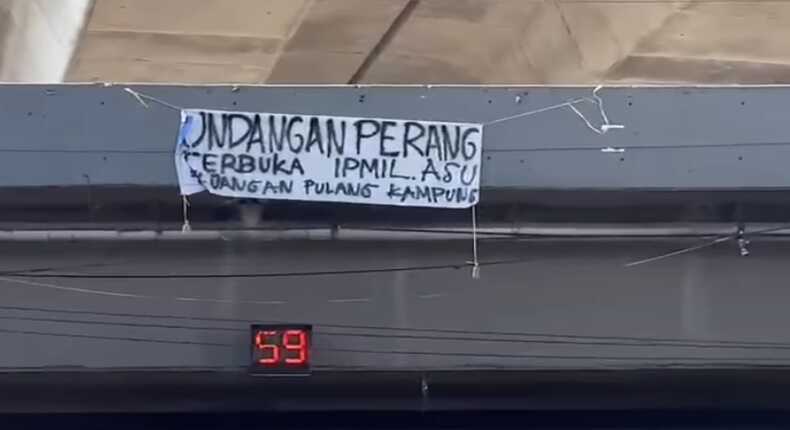 UNDANGAN PERANG
TERBUKA IPMIL. ASU
JANGAN PULANG KAMPUNG
59